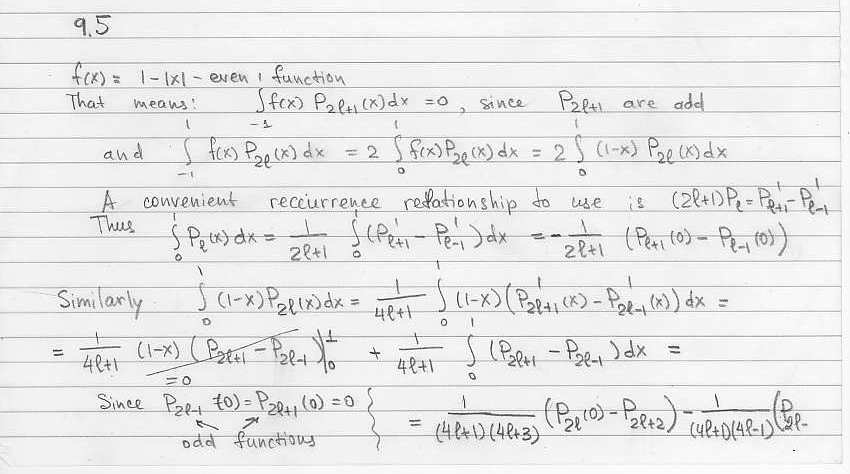 9.5
f(x) = 1-|x| - even function
That means: ∫_{-1}^{1} f(x) P_{2ℓ+1}(x)dx = 0, since P_{2ℓ+1} are add
and ∫_{-1}^{1} f(x) P_{2ℓ}(x) dx = 2 ∫_0^1 f(x)P_{2ℓ}(x)dx = 2 ∫_0^1 (1-x) P_{2ℓ}(x)dx
A convenient recciurrence relationship to use is (2ℓ+1)P_ℓ = P'_{ℓ+1} - P'_{ℓ-1}
Thus ∫_0^1 P_ℓ(x) dx = 1/(2ℓ+1) ∫_0^1 (P'_{ℓ+1} - P'_{ℓ-1})dx = - 1/(2ℓ+1) (P_{ℓ+1}(0) - P_{ℓ-1}(0))
Similarly ∫_0^1 (1-x)P_{2ℓ}(x)dx = 1/(4ℓ+1) ∫_0^1 (1-x)(P'_{2ℓ+1}(x) - P'_{2ℓ-1}(x)) dx =
= 1/(4ℓ+1) (1-x) (P_{2ℓ+1} - P_{2ℓ-1})|_0^1 + 1/(4ℓ+1) ∫_0^1 (P_{2ℓ+1} - P_{2ℓ-1})dx =
=0
Since P_{2ℓ-1}(0) = P_{2ℓ+1}(0) = 0 } = 1/((4ℓ+1)(4ℓ+3)) (P_{2ℓ}(0) - P_{2ℓ+2}) - 1/((4ℓ+1)(4ℓ-1)) (P_{2ℓ-
odd functions